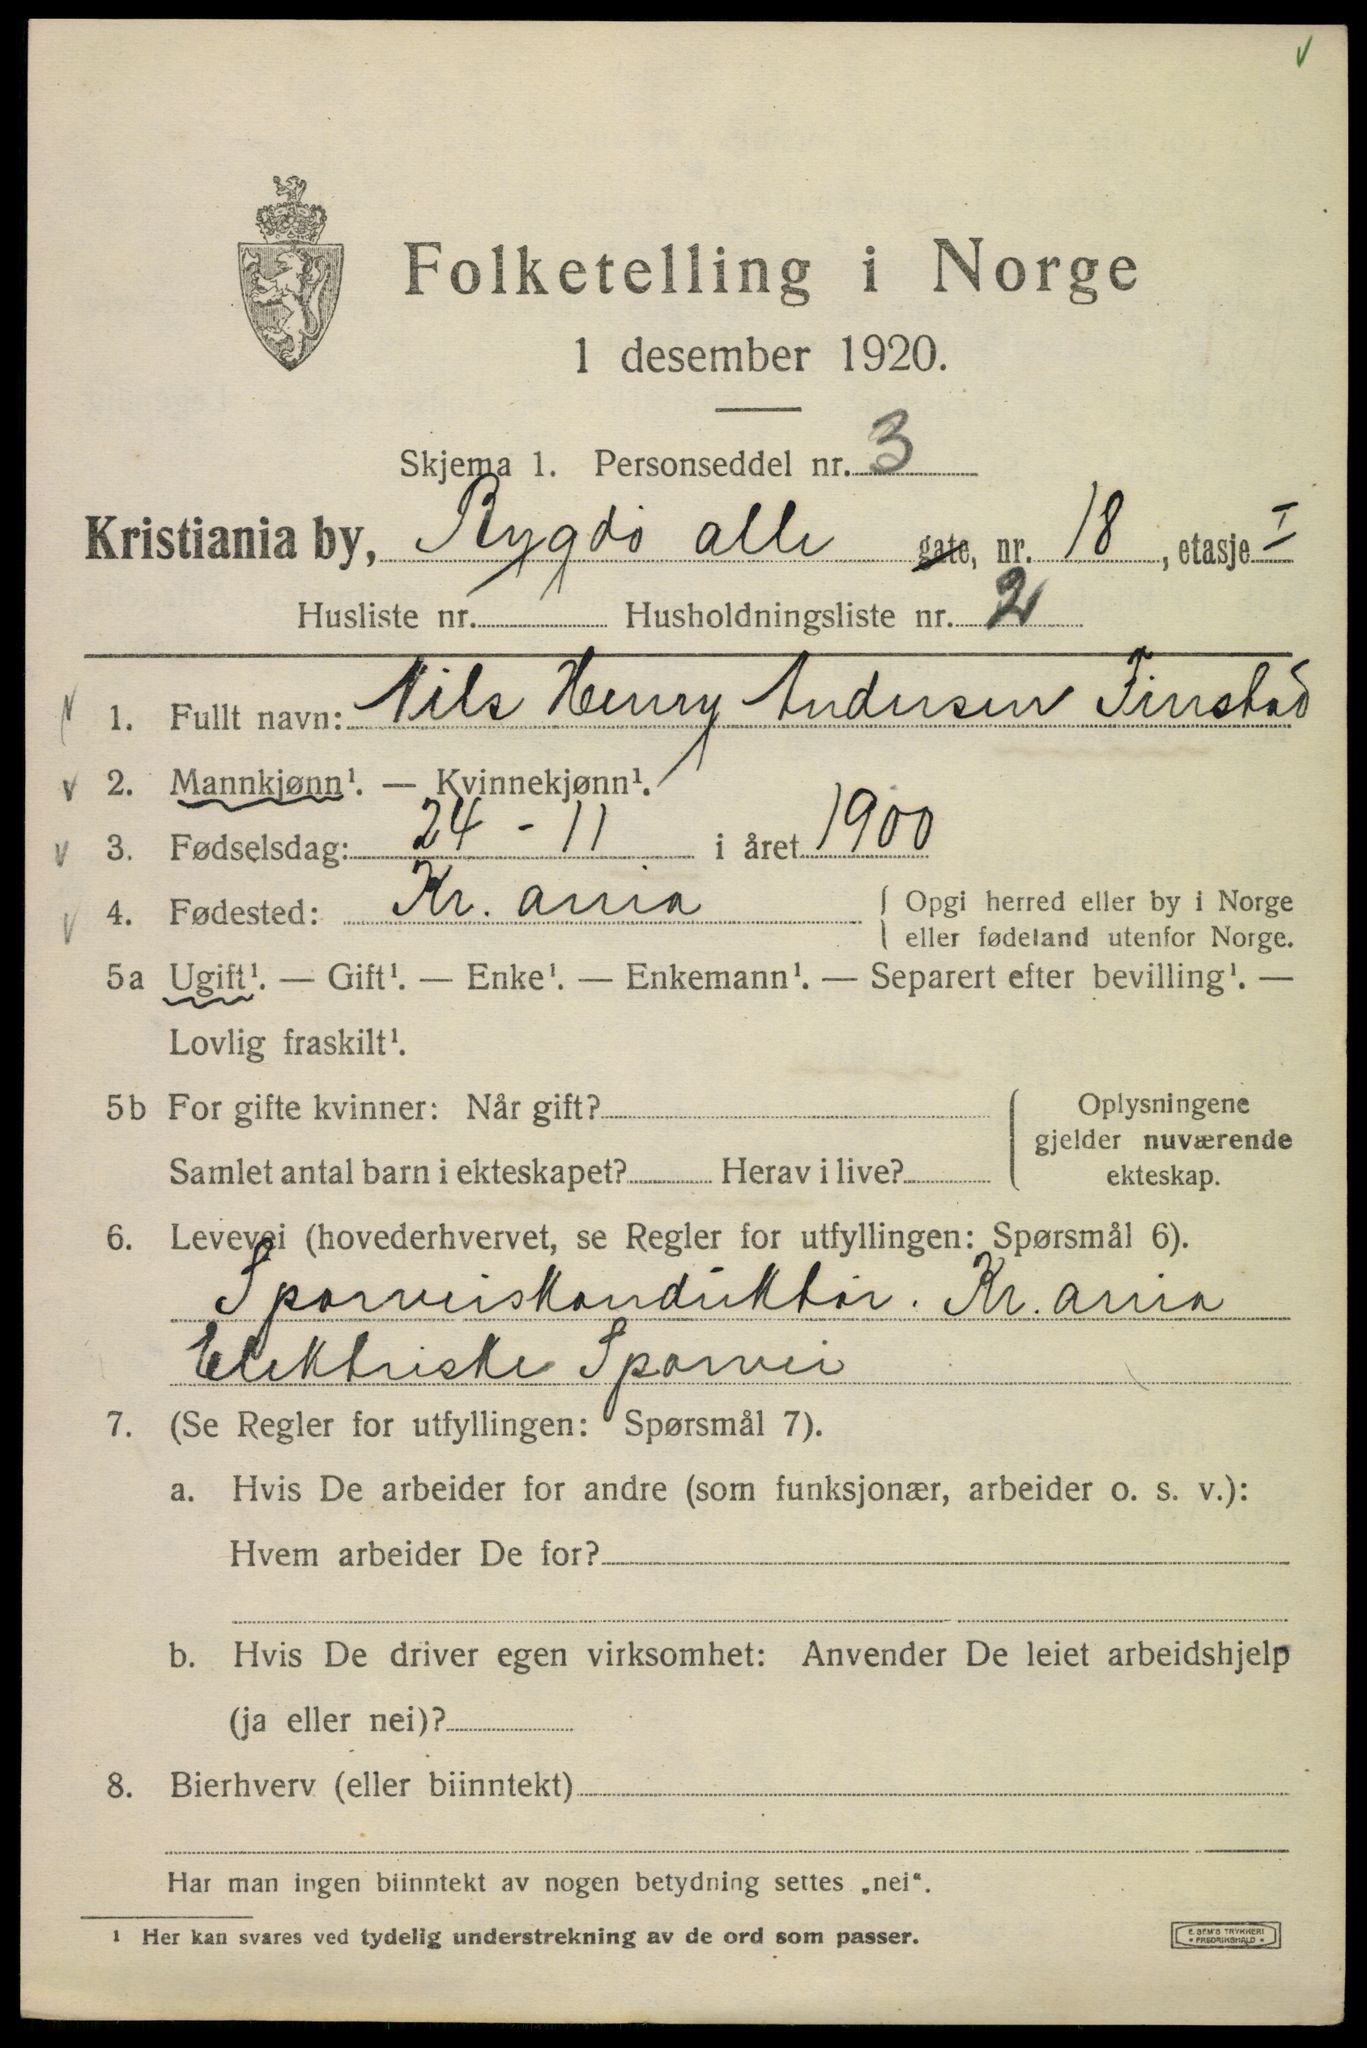 Folketelling i Norge
1 desember 1920.
Skjema 1. Personseddel nr. 3
Kristiania by, Bygdö alle gate, nr. 18, etasje I
Husliste nr. Husholdningsliste nr. 2
1. Fullt navn: Nils Henry Andersen Finstad
2. Mannkjønn¹. — Kvinnekjønn¹.
3. Fødselsdag: 24 - 11 i året 1900
4. Fødested: Kr. ania { Opgi herred eller by i Norge
eller fødeland utenfor Norge.
5a Ugift¹. — Gift¹. — Enke¹. — Enkemann¹. — Separert efter bevilling¹. —
Lovlig fraskilt¹.
5b For gifte kvinner: Når gift? { Oplysningene
gjelder nuværende
Samlet antal barn i ekteskapet? Herav i live? ekteskap.
6. Levevei (hovederhvervet, se Regler for utfyllingen: Spørsmål 6).
Sporveiskonduktør. Kr. ania
Elektriske Sporvei
7. (Se Regler for utfyllingen: Spørsmål 7).
a. Hvis De arbeider for andre (som funksjonær, arbeider o. s. v.):
Hvem arbeider De for?
b. Hvis De driver egen virksomhet: Anvender De leiet arbeidshjelp
(ja eller nei)?
8. Bierhverv (eller biinntekt)
Har man ingen biinntekt av nogen betydning settes „nei“.
¹ Her kan svares ved tydelig understrekning av de ord som passer.
E. SEM'S TRYKKERI
• FREDRIKSHALD •